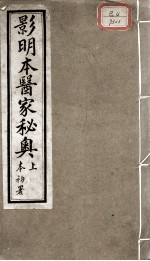 影明本醫家秘奧 上
本初署